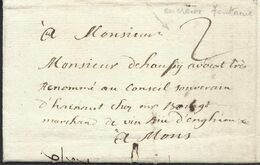 à Monsieur
2
Monsieur dehaussy avocat très
Renommé au Conseil souverain
d'hainaut chez mr
marchand de vin Rue d'enghien
à Mons